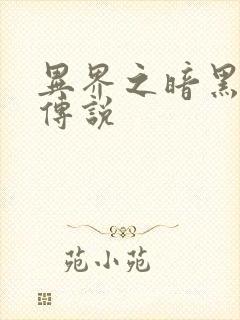 異界之暗黑
傳說
苑小苑